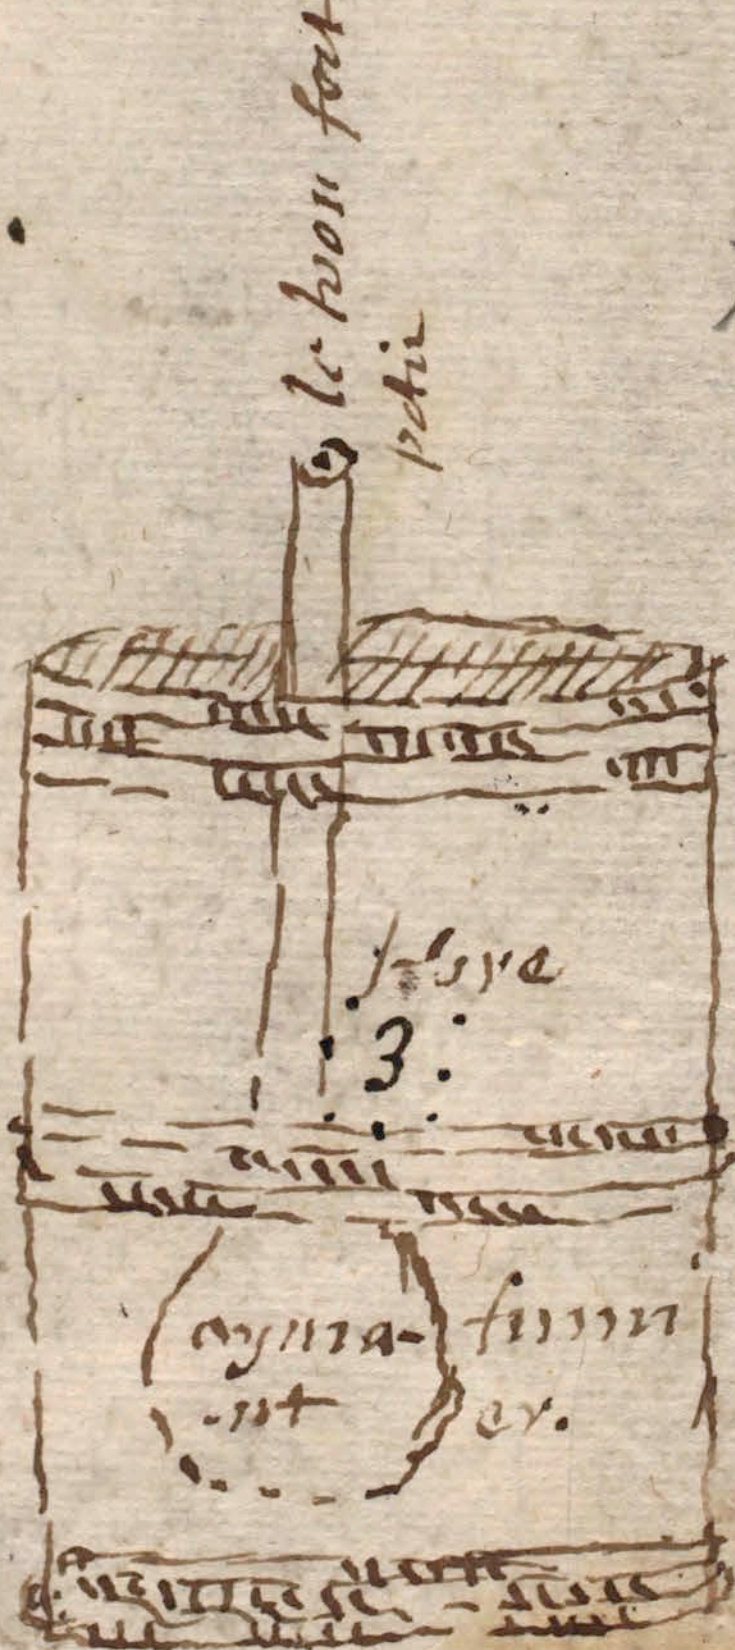 le trou soit
petit
soye
3
ayma-
nt
fumi
er.